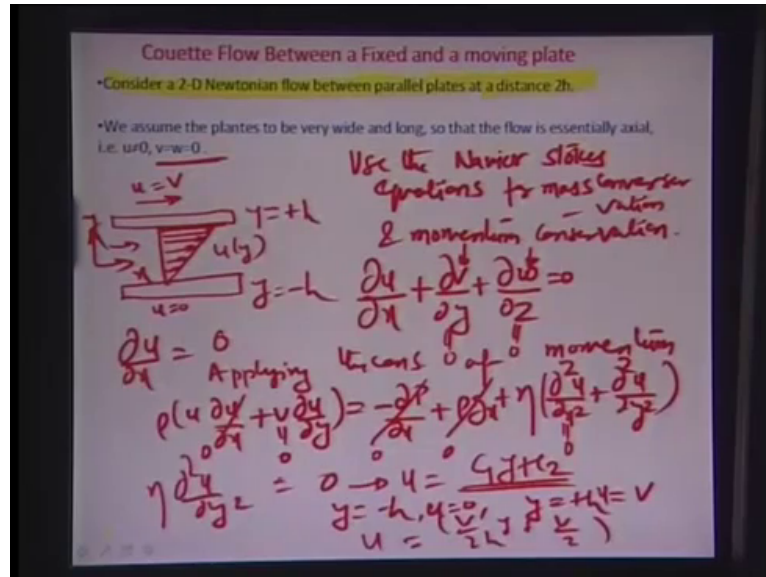 Couette Flow Between a Fixed and a moving plate
•Consider a 2-D Newtonian flow between parallel plates at a distance 2h.
•We assume the plantes to be very wide and long, so that the flow is essentially axial,
i.e. u≠0, v=w=0.
Use the Navier Stokes
equations for mass conservation
& momentum conservation.
u = V
y=+h
u(y)
x
y=-h
u=0
∂u/∂x + ∂v/∂y + ∂w/∂z = 0
0 0
∂u/∂x = 0
Applying the cons of momentum
ρ(u ∂u/∂x + v ∂u/∂y) = -∂p/∂x + ρgx + η(∂²u/∂x² + ∂²u/∂y²)
0 0 0 0 0
η ∂²u/∂y² = 0 → u = C1y+C2
y=-h, u=0, y=+h u=V
u = (V/2h y + V/2)